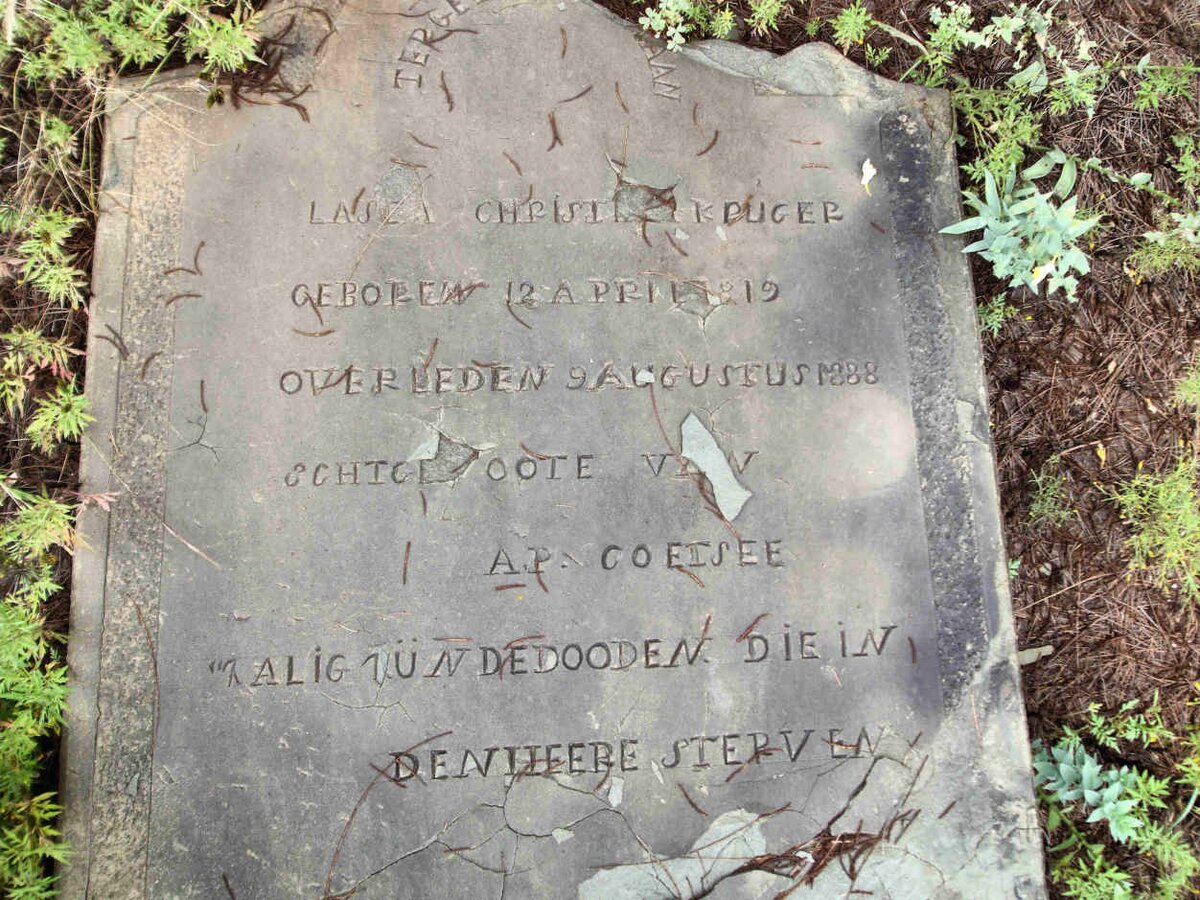 TERGE AN
CHRISTINA KRUGER
GEBOREN 12 APRIL 1819
OVERLEDEN 9 AUGUSTUS 1888
ECHTGENOOTE VAN
A.P. COETSEE
"ZALIG ZÜN DE DOODEN. DIE IN
DEN HEERE STERVEN